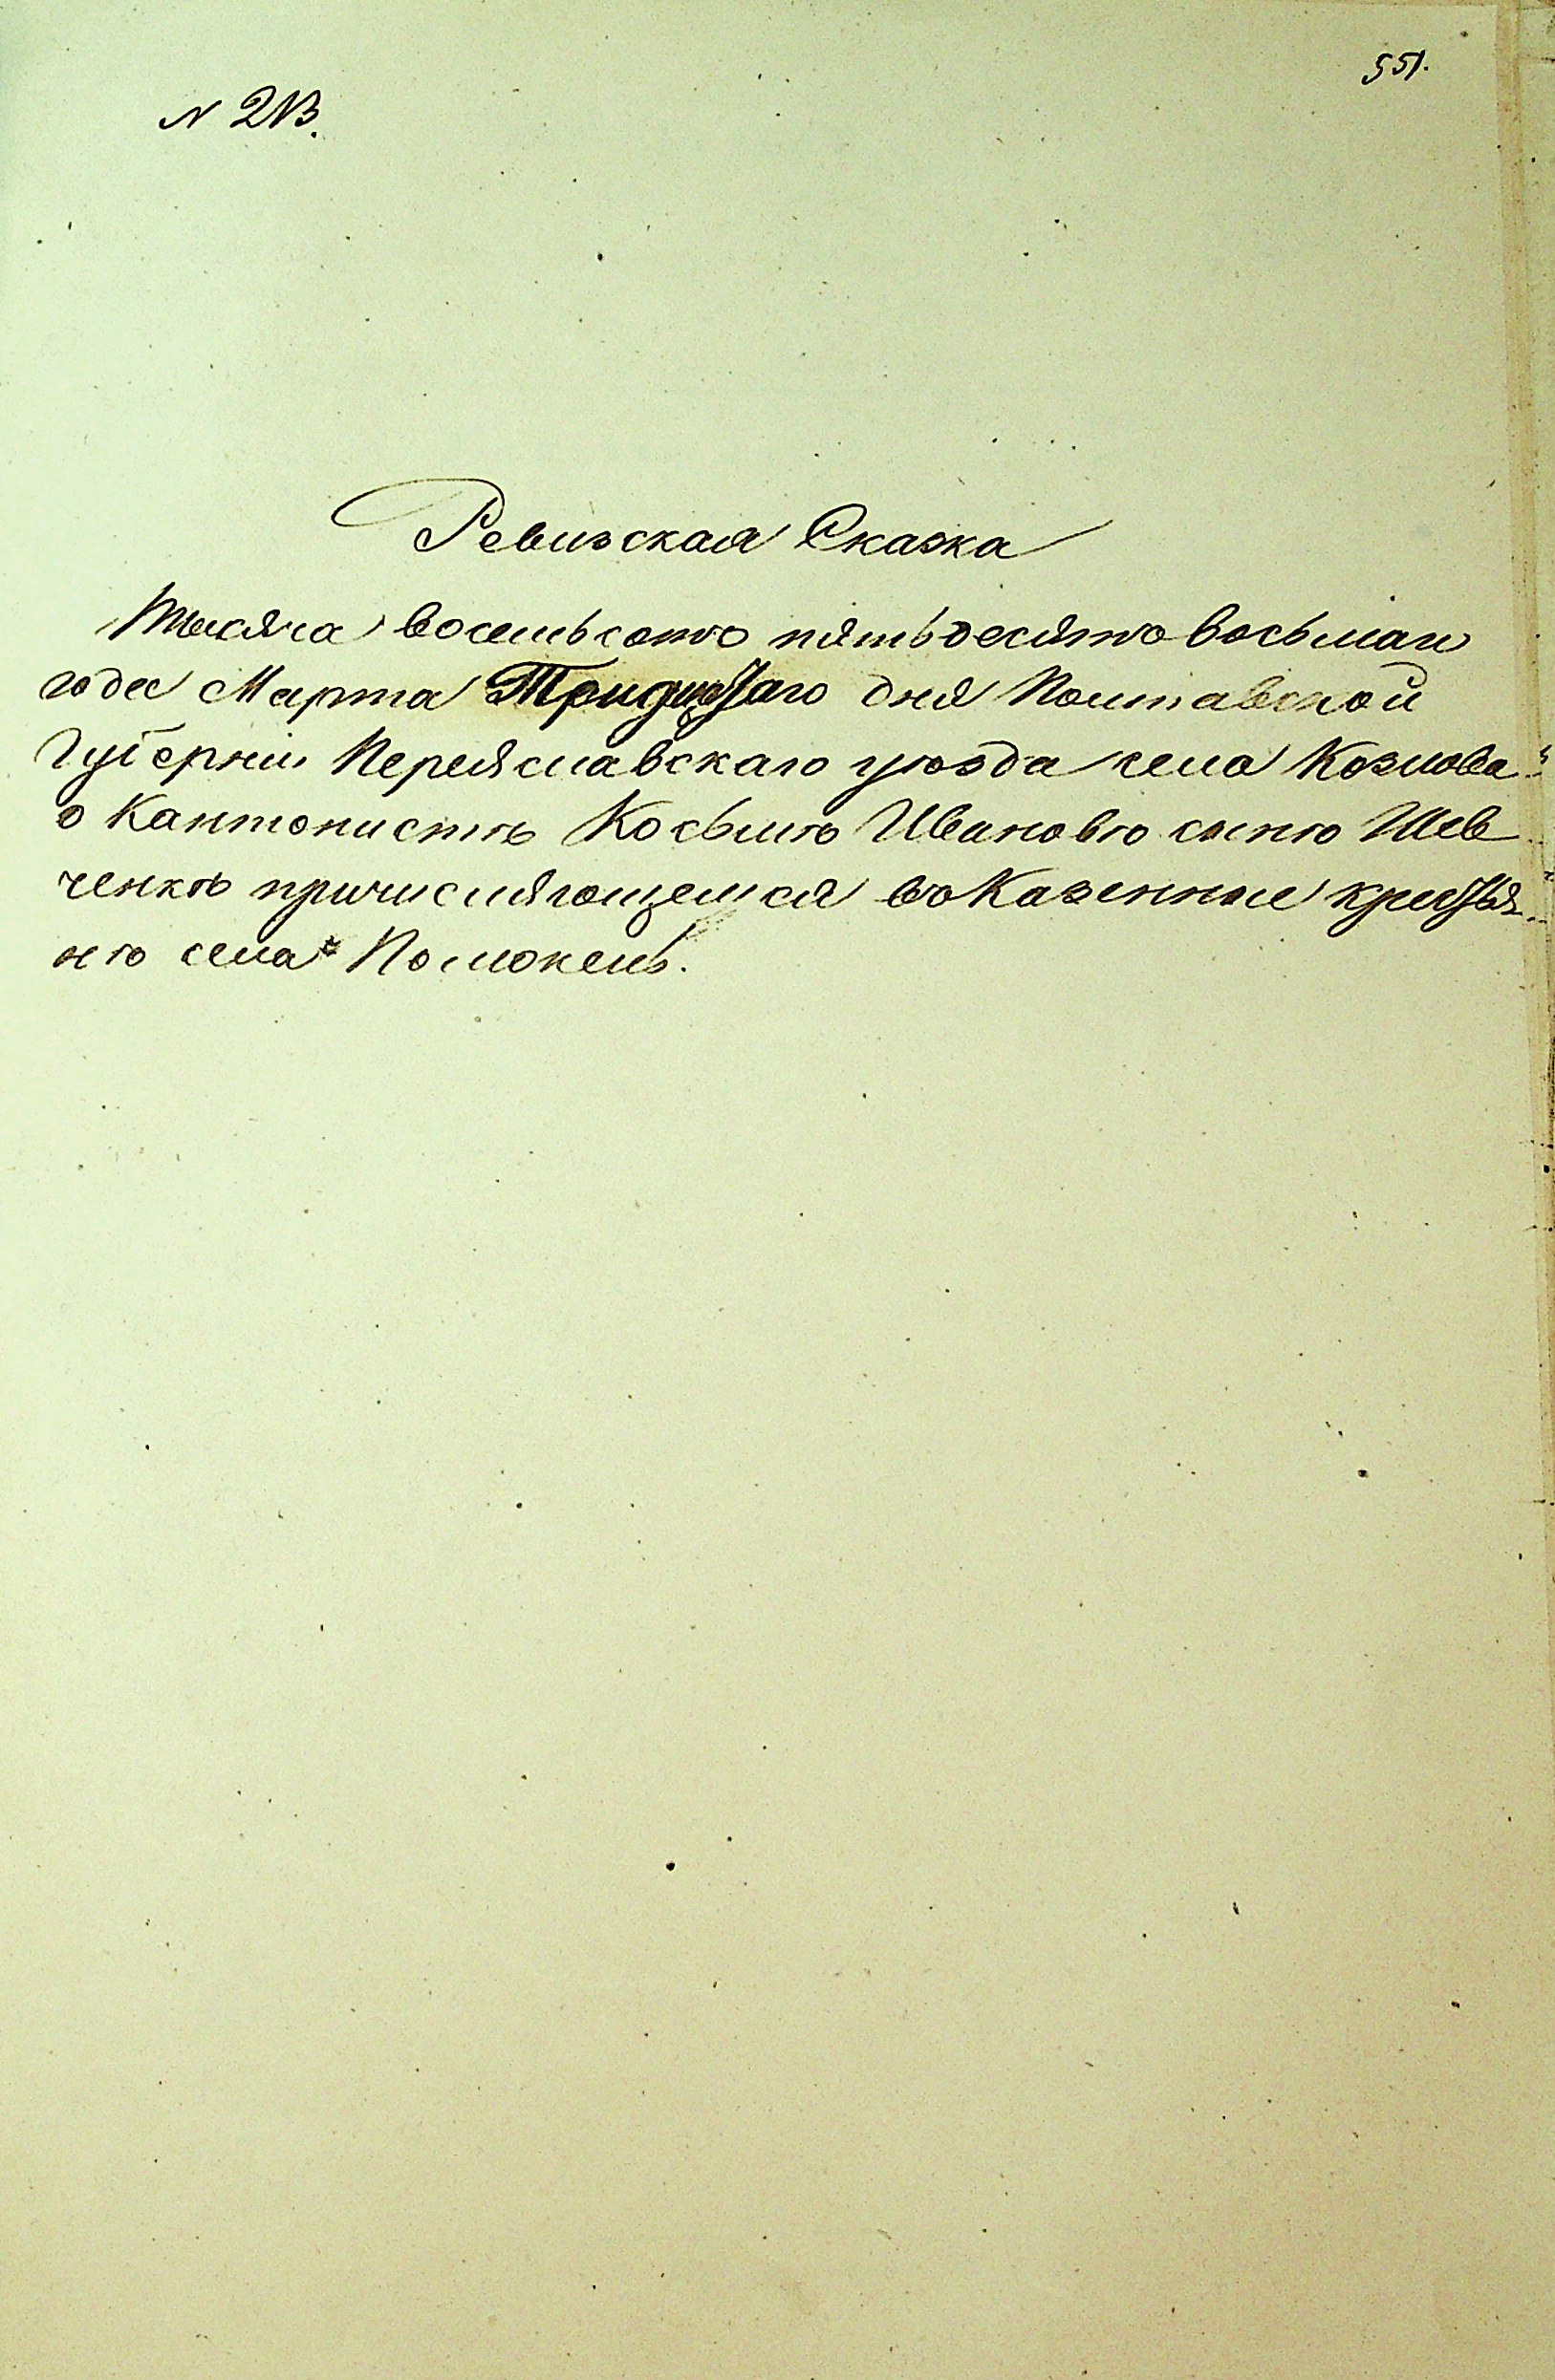 N 213.
551.
Ревизская Сказка
Тысяча восемьсотъ пятьдесятъ восьмаго
года Марта Тридцатаго дня Полтавской
Губерніи Переяславскаго уѣзда села Козлова
о Кантонистѣ Косьмѣ Ивановѣ сынѣ Шев
ченкѣ причисляющемся въ Казенные крестья
нѣ села Помокель.